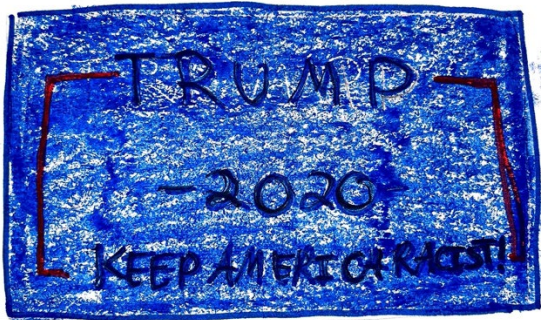 TRUMP
-2020-
KEEP AMERICA RACIST!